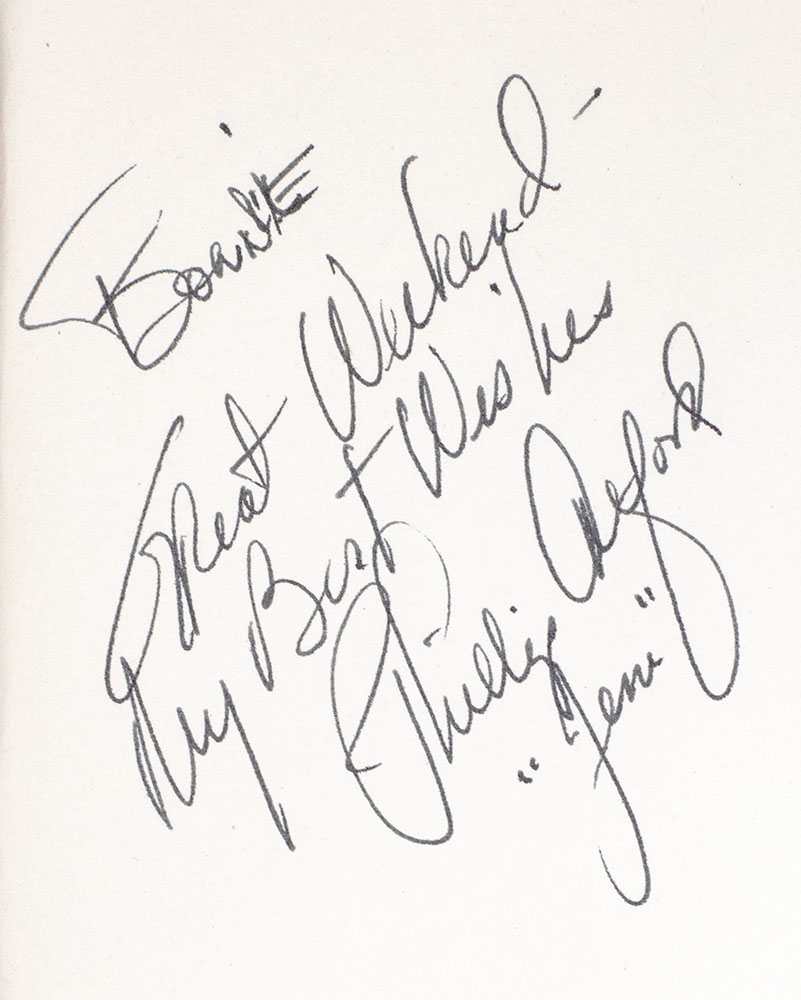 Bonnie
Great Weekend -
My Best Wishes
Phillip Alford
"Jem"